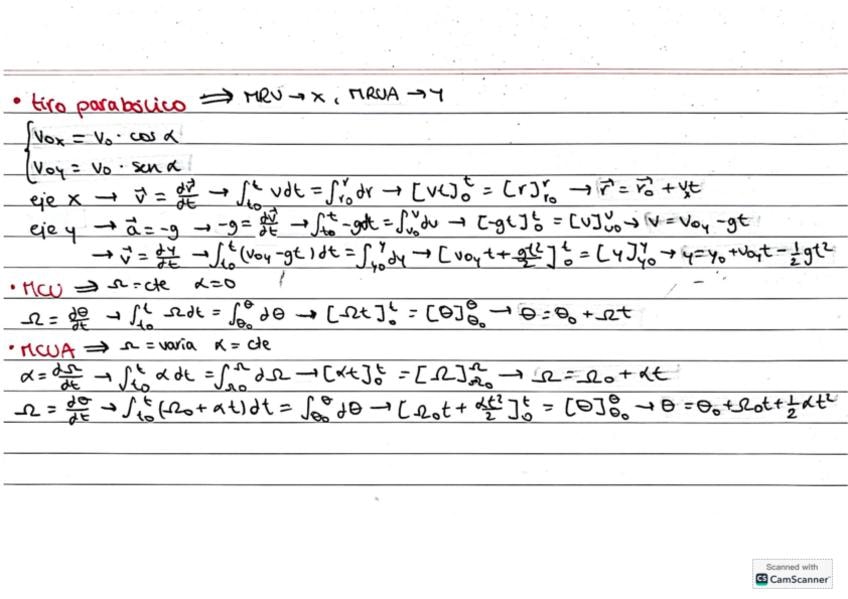 • tiro parabólico ⟹ MRU → X, MRUA → Y
{ V₀ₓ = V₀ · cos α
V₀y = V₀ · sen α
eje x → v⃗ = dr⃗/dt → ∫_{t₀}^{t} v dt = ∫_{r₀}^{r} dr → [vt]₀^t = [r]_{r₀}^{r} → r⃗ = r⃗₀ + vₓt
eje y → a⃗ = -g → -g = dv⃗/dt → ∫_{t₀}^{t} -g dt = ∫_{v₀}^{v} dv → [-gt]₀^t = [v]_{v₀}^{v} → v = v₀y - gt
→ v⃗ = dy/dt → ∫_{t₀}^{t} (v₀y - gt) dt = ∫_{y₀}^{y} dy → [v₀y t + gt²/2]₀^t = [y]_{y₀}^{y} → y = y₀ + v₀y t - ½ gt²
• MCU ⟹ Ω = cte α = 0
Ω = dθ/dt → ∫_{t₀}^{t} Ω dt = ∫_{θ₀}^{θ} dθ → [Ωt]₀^t = [θ]_{θ₀}^{θ} → θ = θ₀ + Ωt
• MCUA ⟹ Ω = varia α = cte
α = dΩ/dt → ∫_{t₀}^{t} α dt = ∫_{Ω₀}^{Ω} dΩ → [αt]₀^t = [Ω]_{Ω₀}^{Ω} → Ω = Ω₀ + αt
Ω = dθ/dt → ∫_{t₀}^{t} (Ω₀ + αt) dt = ∫_{θ₀}^{θ} dθ → [Ω₀t + αt²/2]₀^t = [θ]_{θ₀}^{θ} → θ = θ₀ + Ω₀t + ½ αt²
Scanned with
CS CamScanner